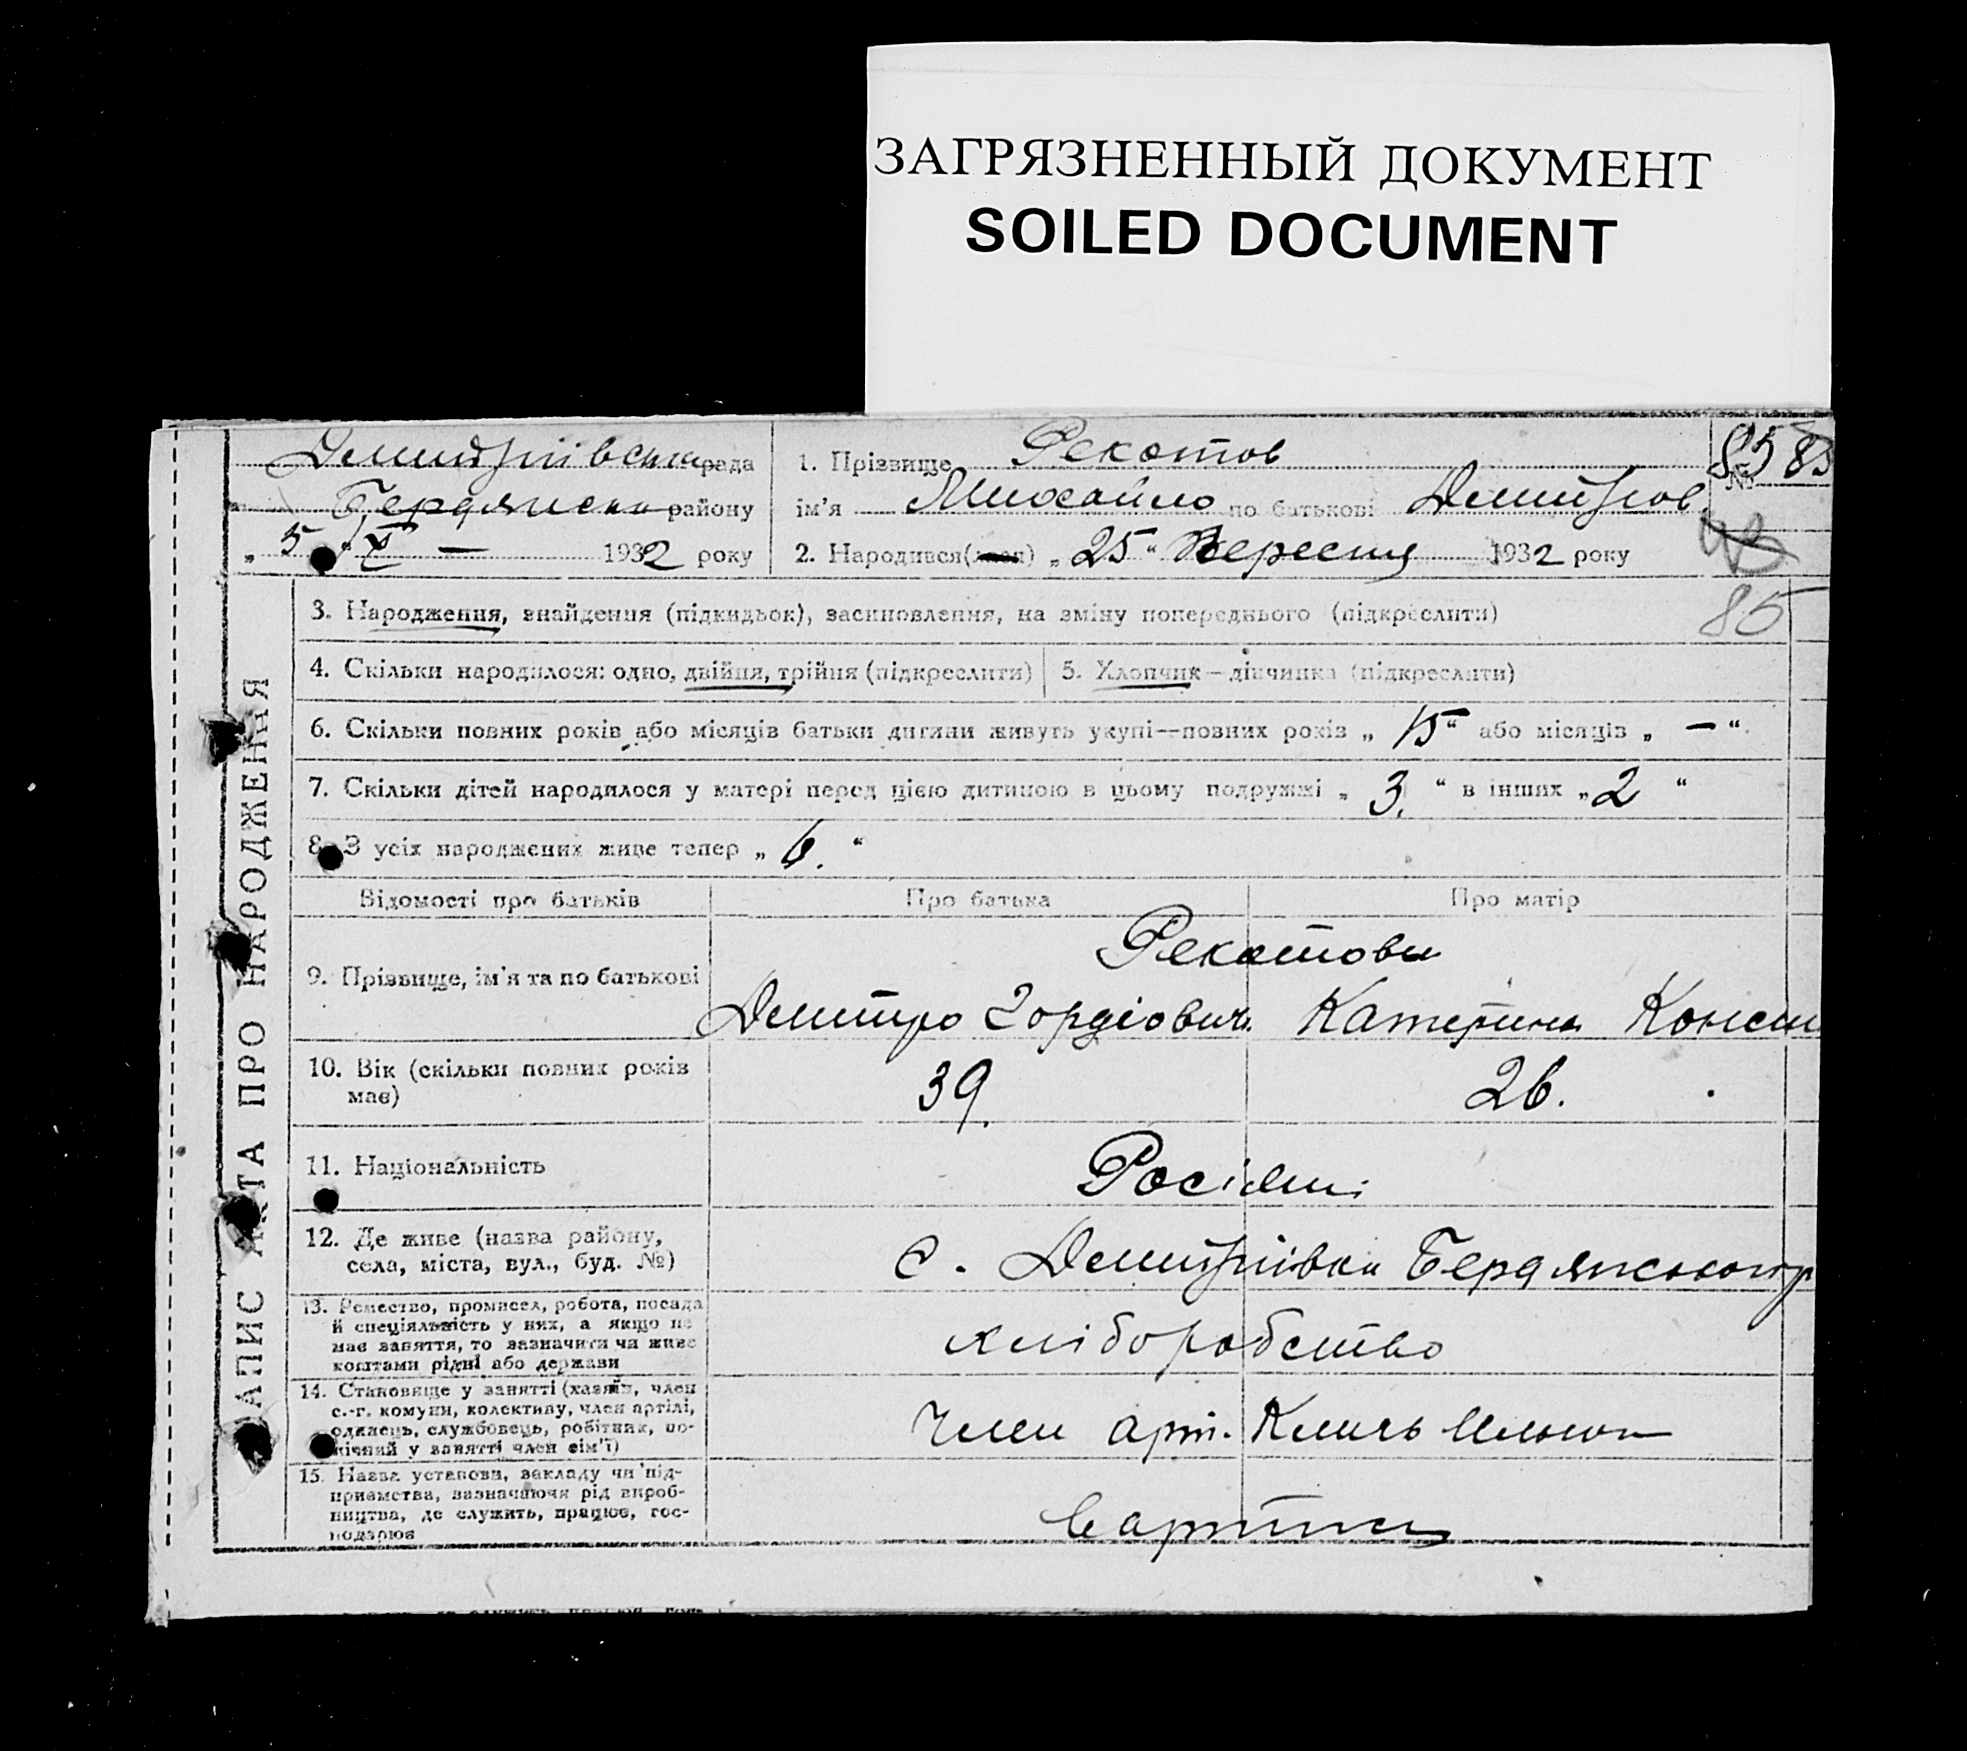 ЗАГРЯЗНЕННЫЙ ДОКУМЕНТ
SOILED DOCUMENT
ЗАПИС АКТА ПРО НАРОДЖЕННЯ
Дмитріївська рада
Бердянськ району
„ 5 “ X — 1932 року
1. Прізвище Рекотов
ім'я Михайло по батькові Дмитров.
2. Народився „ 25 “ Вересня 1932 року
№ 85 85
85
3. Народження, знайдення (підкидьок), засиновлення, на зміну попереднього (підкреслити)
4. Скільки народилося: одно, двійня, трійня (підкреслити)
5. Хлопчик – дівчинка (підкреслити)
6. Скільки повних років або місяців батьки дитини живуть укупі—повних років „ 15 “ або місяців „ — “
7. Скільки дітей народилося у матері перед цією дитиною в цьому подружжі „ 3. “ в інших „ 2 “
8. З усіх народжених живе тепер „ 6. “
Відомості про батьків Про батька Про матір
9. Прізвище, ім'я та по батькові
Рекотови
Дмитро Гордіович Катерина Конст
10. Вік (скільки повних років має)
39. 26.
11. Національність
Росіяни
12. Де живе (назва району,
села, міста, вул., буд. №)
с. Дмитріівка Бердянського р
13. Ремество, промисел, робота, посада
й спеціяльність у них, а якщо не
має заняття, то зазначити чи живе
коштами рідні або держави
хліборобство
14. Становище у занятті (хазяїн, член
с.-г. комуни, колективу, член артілі,
одинець, службовець, робітник, по-
мічний у занятті член сім'ї)
Член арт.
15. Назва установи, закладу чи під-
приємства, зазначаючи рід вироб-
ництва, де служить, працює, гос-
подарює